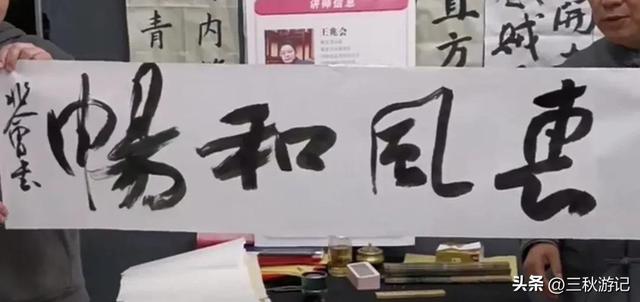 惠風和暢
兆会书
讲师信息
王兆会
青
内
直方
开
头条 @三秋游记